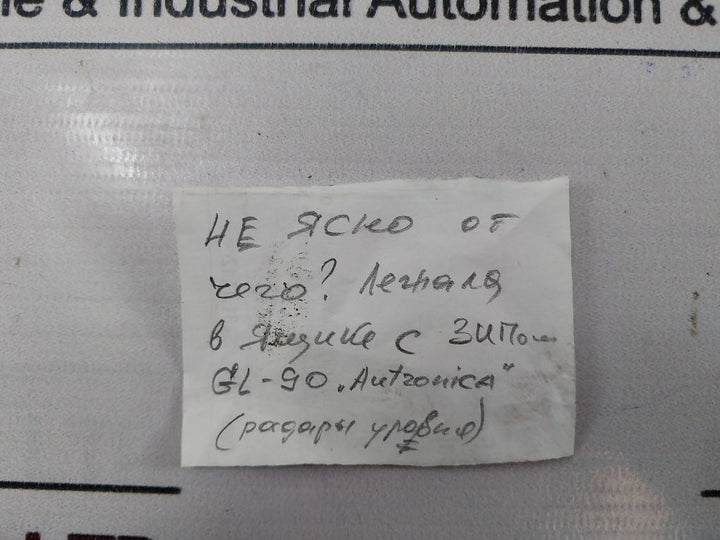 le & Industrial Automation &
НЕ ЯСНО ОТ
чего? Лежала
в ящике с ЗИПом
GL-90 „Autronica"
(радары уровня)